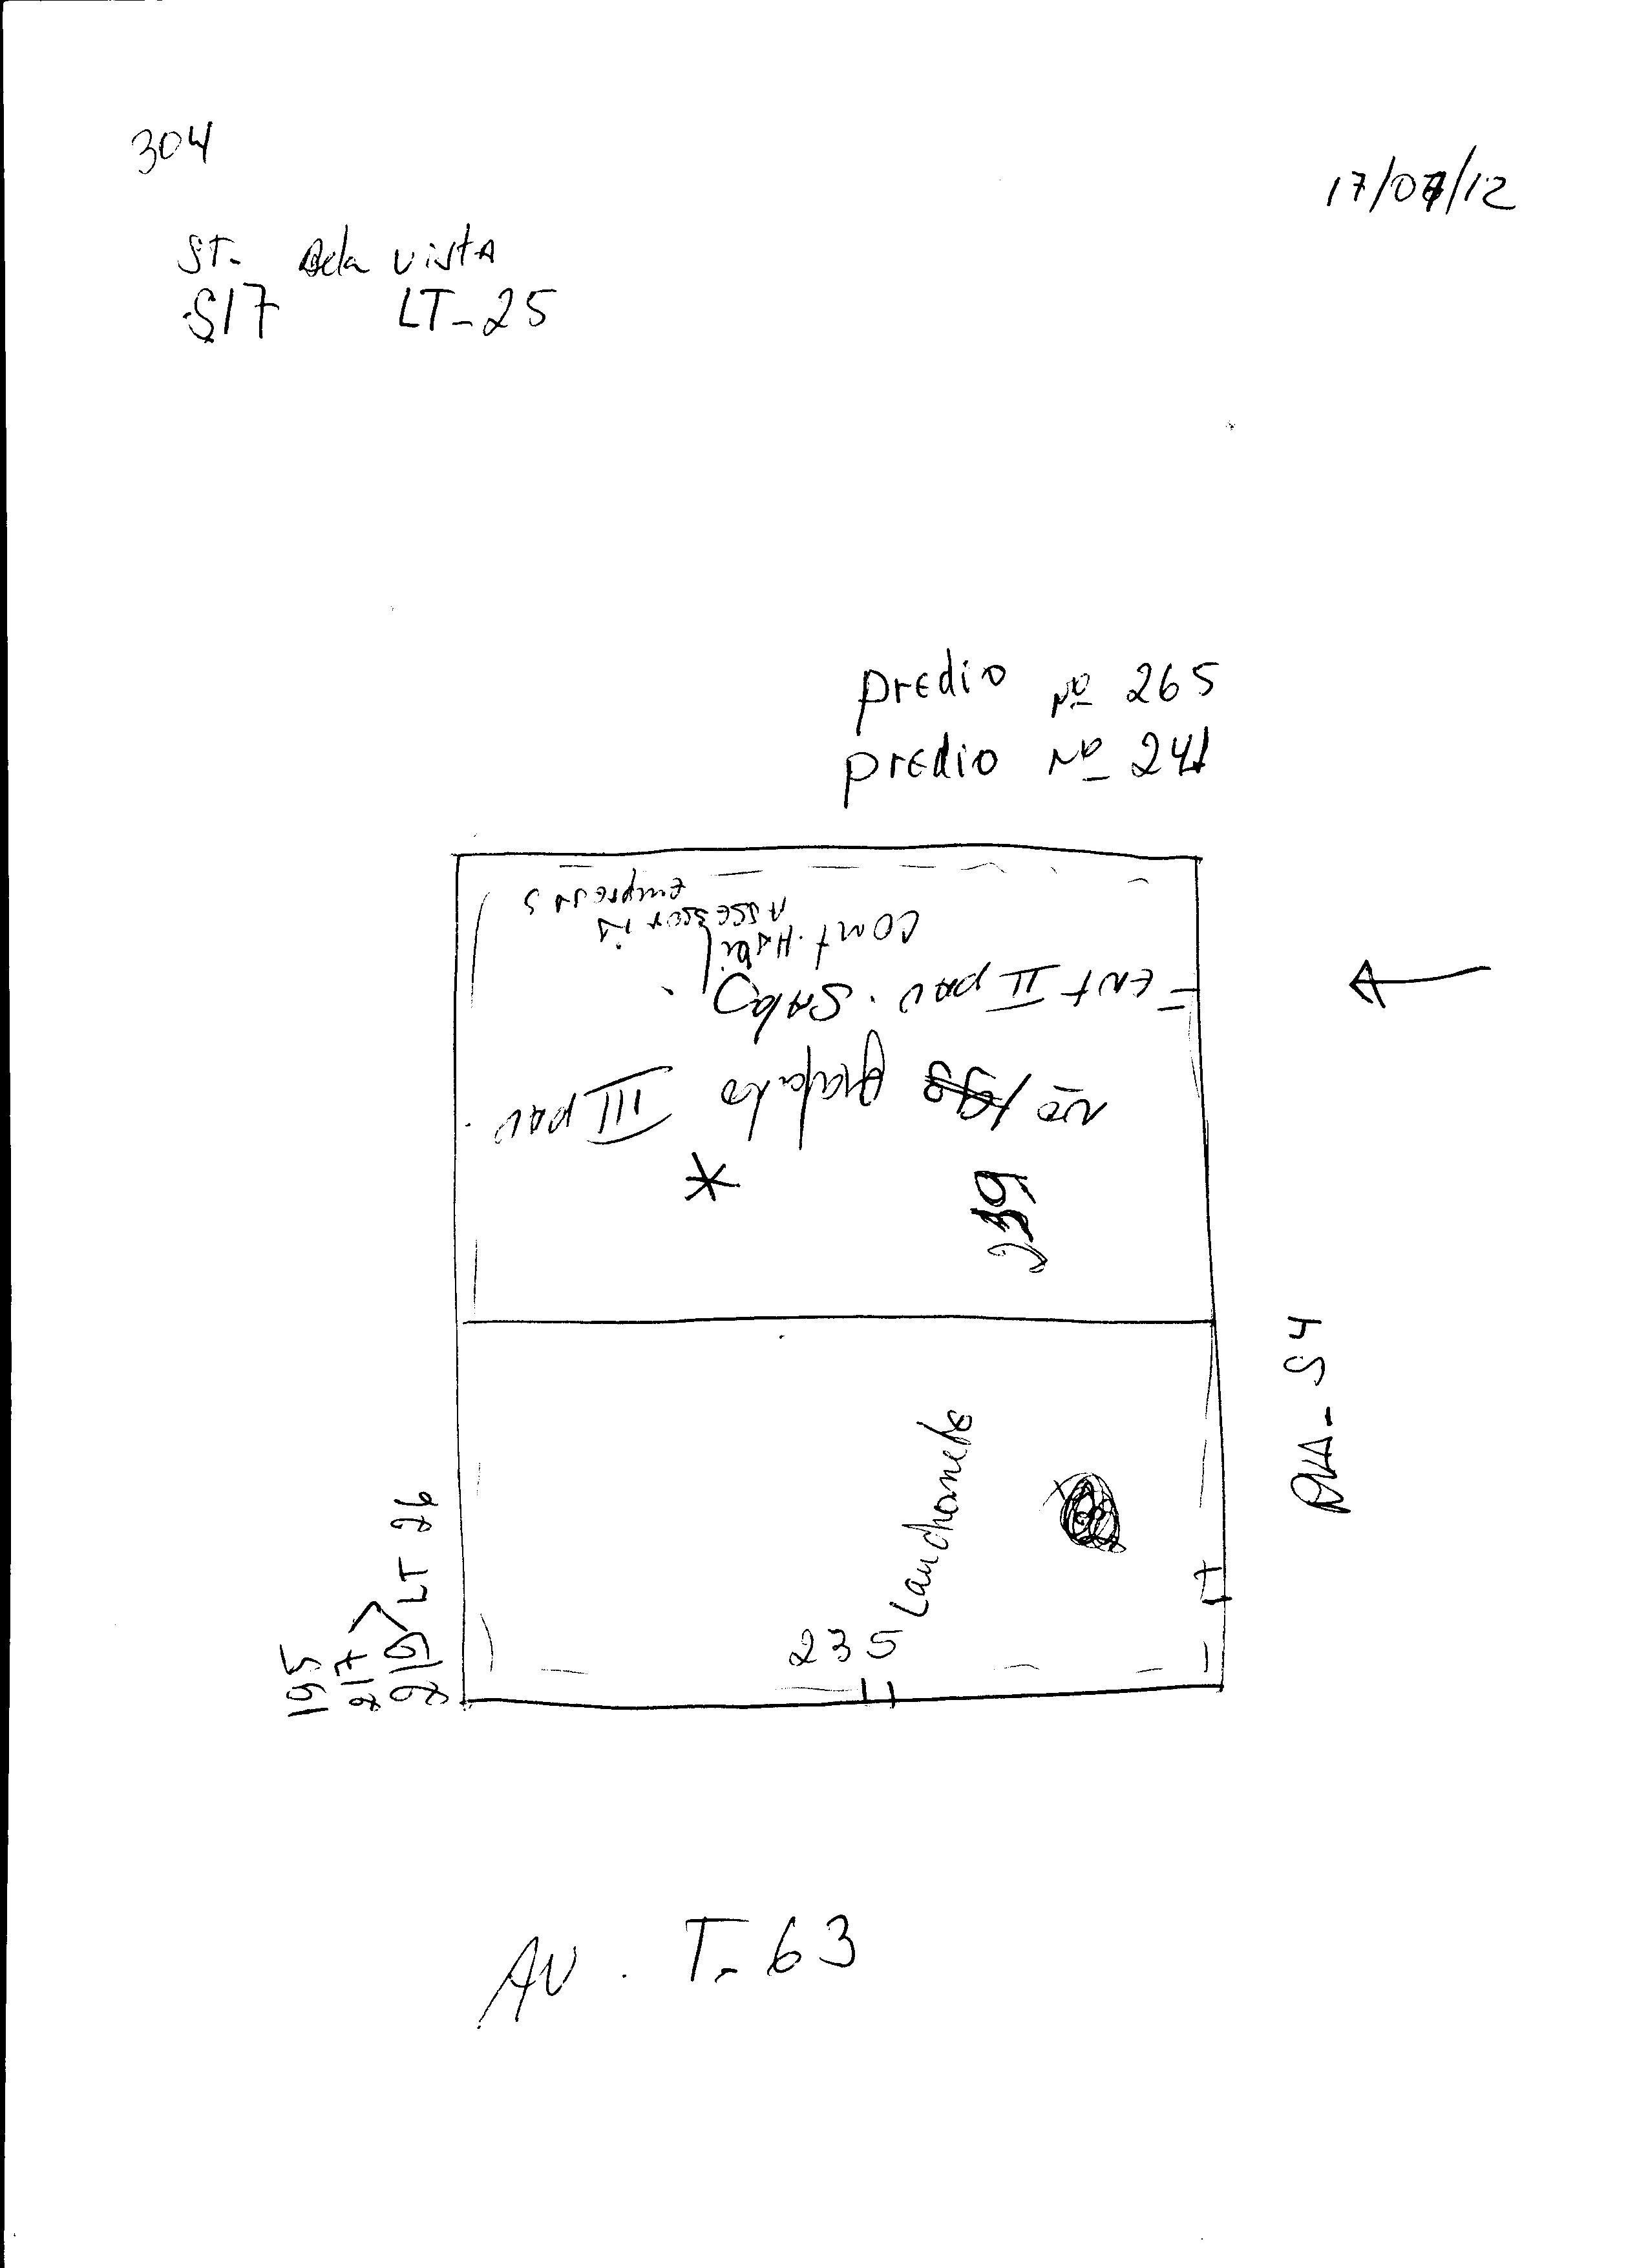 304
17/07/12
ST- Bela vistA
S17 LT-25
prEdio Nº 265
prEdio Nº 241
EmpresAs
AssessoriA
cont. HAbil
ENT II pAv. SAlA
Nº III pAv
*
239
235
RUA - S4
LT 26
195
217
219
AV. T-63